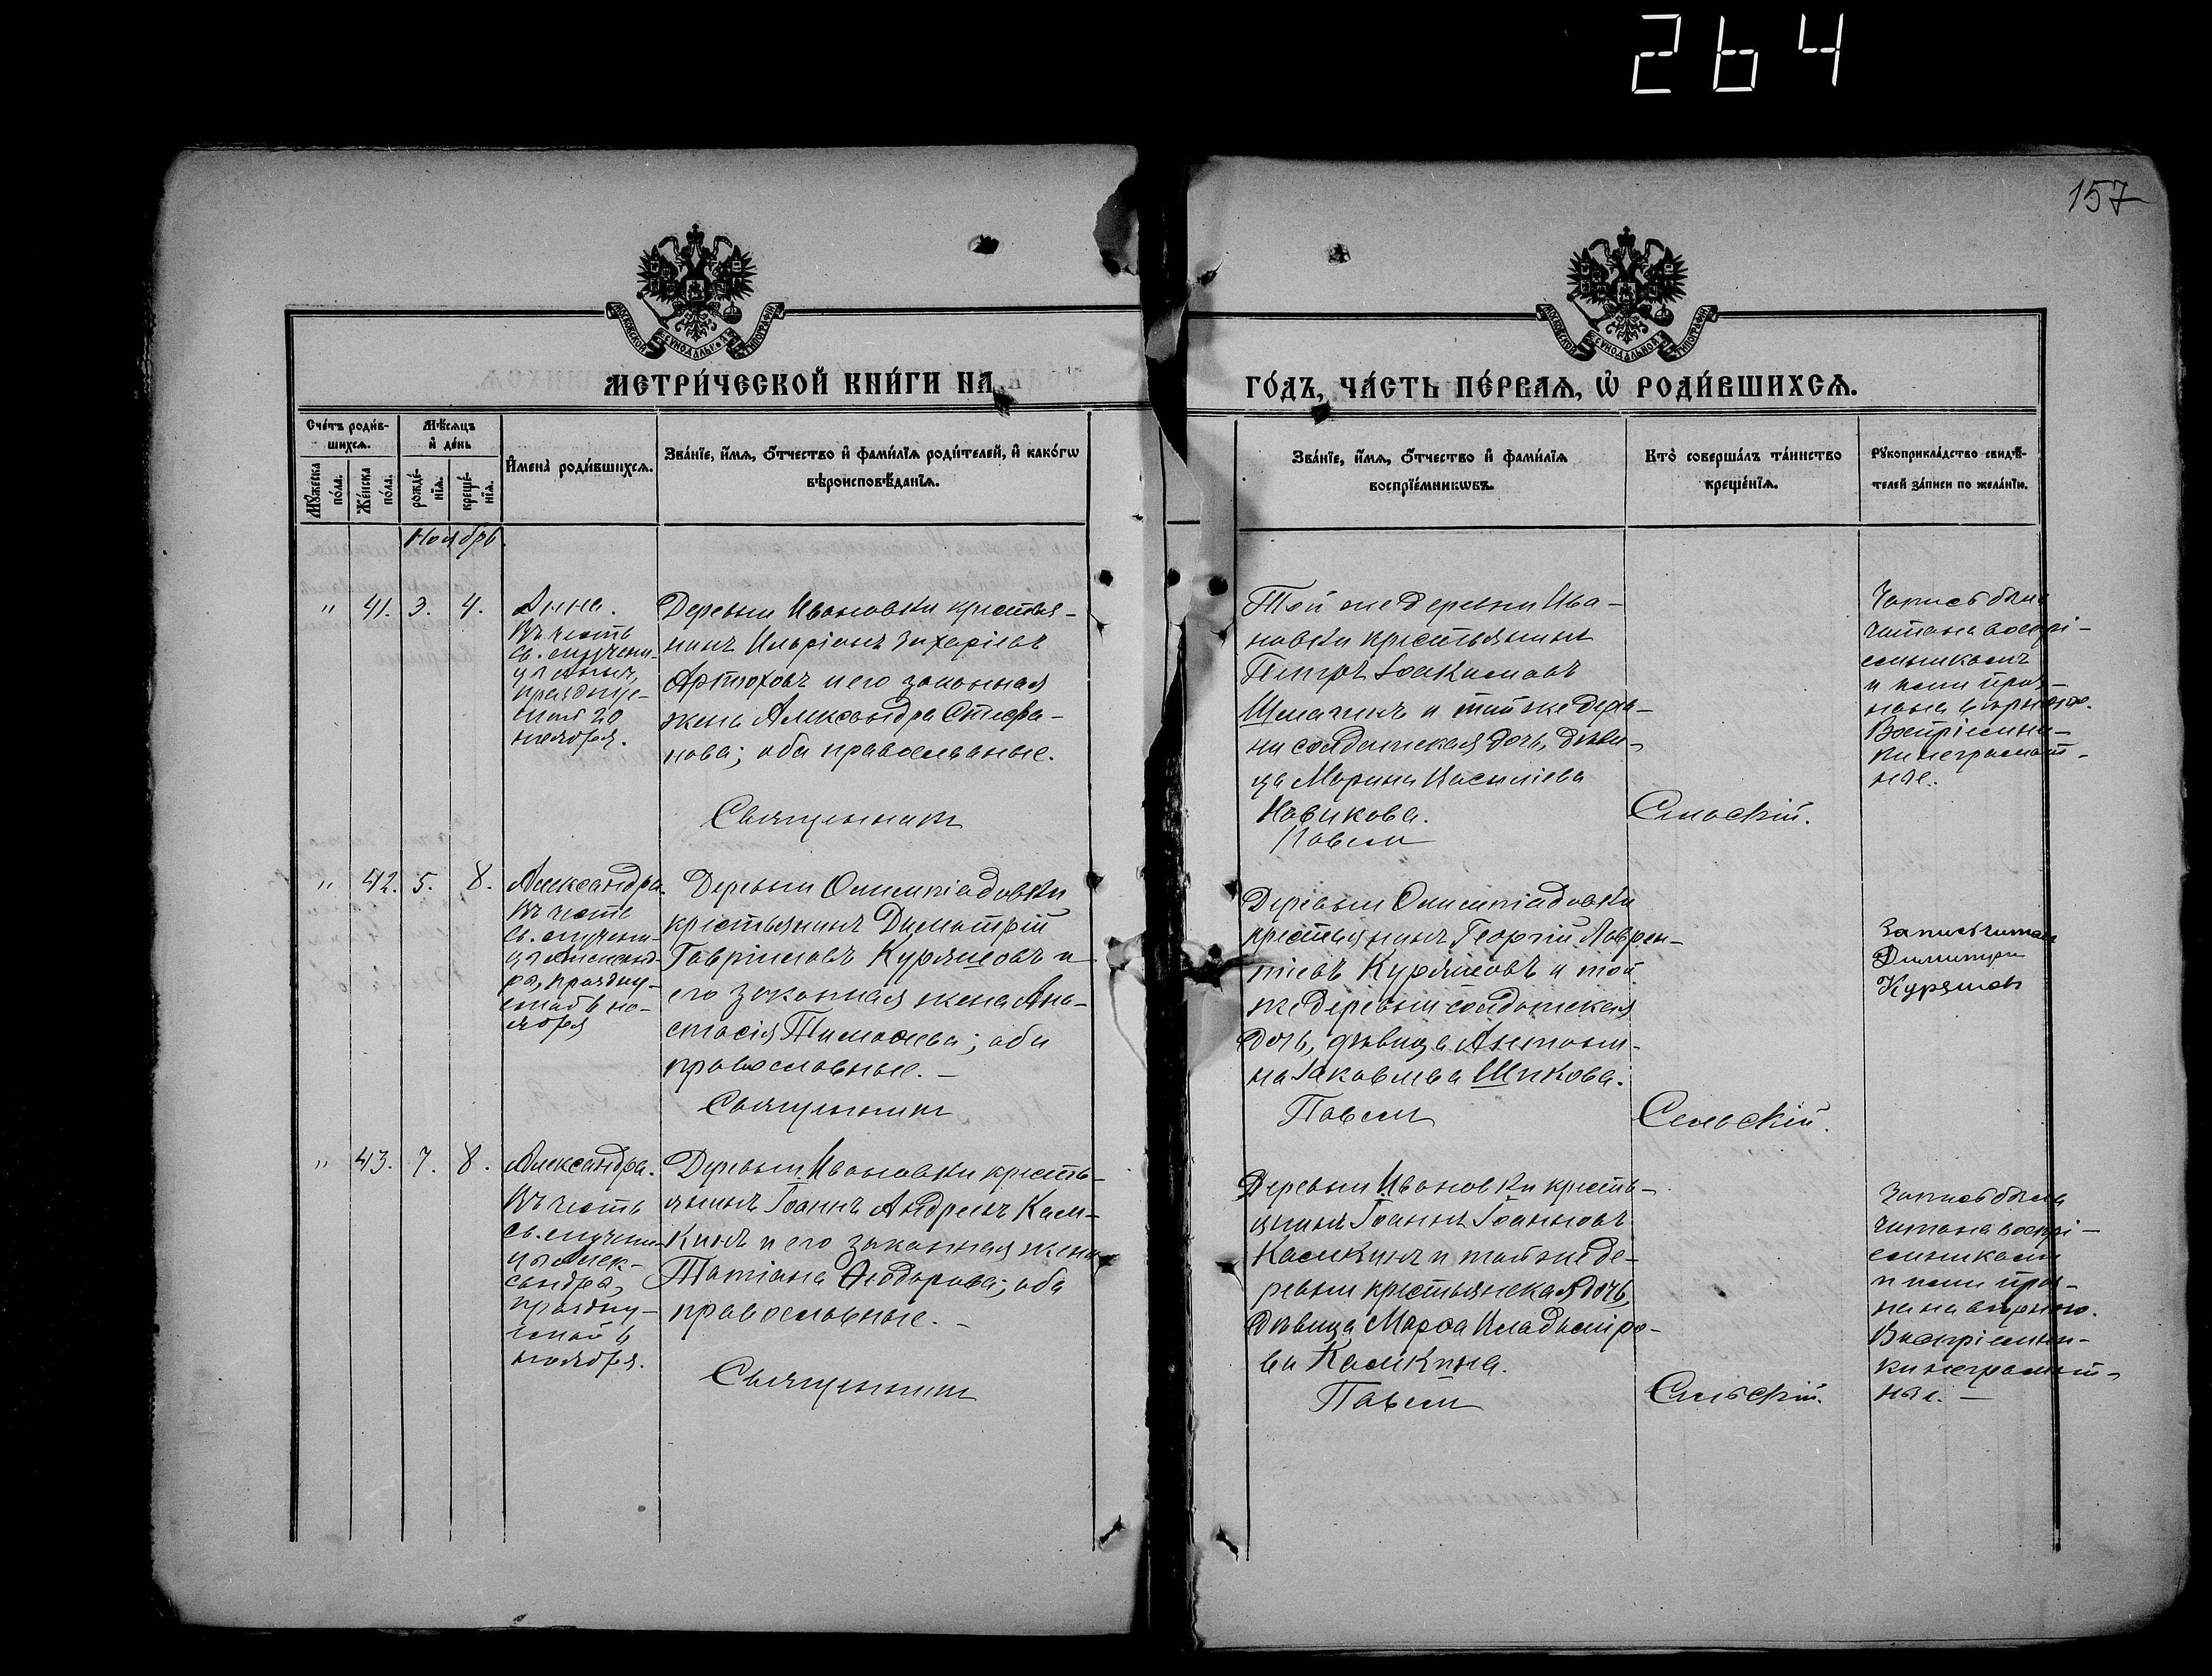 264
157
МОСКОВСКОЙ СѴНОДАЛЬНОЙ ТИПОГРАФІИ
МОСКОВСКОЙ СѴНОДАЛЬНОЙ ТИПОГРАФІИ
МЕТРИ́ЧЕСКОЙ КНИ́ГИ НА
ГО́ДЪ, ЧА́СТЬ ПЕ́РВАѦ, Ѡ҆ РОДИ́ВШИХСѦ.
Сче́тъ роди́в-
шихсѧ.
Мѹ́жеска по́ла.
Же́нска по́ла.
Мѣ́сѧцъ
и҆ де́нь
рожде́-нїѧ.
креще́-нїѧ.
И҆мена̀ роди́вшихсѧ.
Зва́нїе, и҆́мѧ, ѻ҆́тчество и҆ фами́лїѧ роди́телей, и҆ како́гѡ
вѣроисповѣ́данїѧ.
Зва́нїе, и҆́мѧ, ѻ҆́тчество и҆ фами́лїѧ
воспрїе́мникѡвъ.
Кто̀ соверша́лъ та́инство
креще́нїѧ.
Рѹкоприкла́дство свидѣ́-
телей за́писи по жела́нїю.
Ноябрь
" 41. 3. 4.
Анна.
Въ честь
св. мучени-
цы Анны,
празднуе-
мой 20
ноября.
Деревни Ивановки крестья-
нинъ Иларіонъ Захаріевъ
Артюховъ и его законная
жена Александра Стефа-
нова; оба православные.
Священникъ
Той же деревни Ива-
новки крестьянинъ
Петръ Іоакимовъ
Шмагинъ и той же дерев-
ни солдатская дочь, дѣви-
ца Марина Васильева
Новикова.
Павелъ
Сельскій.
Запись была
читана воспрі-
емникомъ
и ими приз-
нана вѣрною.
Воспріемни-
ки неграмот-
ные.
" 42. 5. 8.
Александра.
Въ честь
св. мучени-
цы Александ-
ры, праздну-
емой 6 но-
ября
Деревни Олимпіадовки
крестьянинъ Димитрій
Гавріиловъ Куряшовъ и
его законная жена Ана-
стасія Тимоѳеева; оба
православные. —
Священникъ
Деревни Олимпіадовки
крестьянинъ Георгій Лаврен-
тіевъ Куряшовъ и той
же деревни солдатская
дочь, дѣвица Антони-
на Іаковлева Шикова.
Павелъ
Сельскій.
Запись читалъ
Димитри
Куряшовъ
" 43. 7. 8.
Александра.
Въ честь
св. мучени-
цы Алек-
сандры,
праздну-
емой 6
ноября.
Деревни Ивановки кресть-
янинъ Іоаннъ Андреевъ Калм-
кинъ и его законная жена
Татіана Ѳеодорова; оба
православные. —
Священникъ
Деревни Ивановки кресть-
янинъ Іоаннъ Іоанновъ
Калмкинъ и той же де-
ревни крестьянская дочь,
дѣвица Марѳа Владиміро-
ва Калмкина.
Павелъ
Сельскій.
Запись была
читана воспрі-
емникомъ
и ими приз-
нана вѣрною.
Воспріемни-
ки неграмот-
ные. —